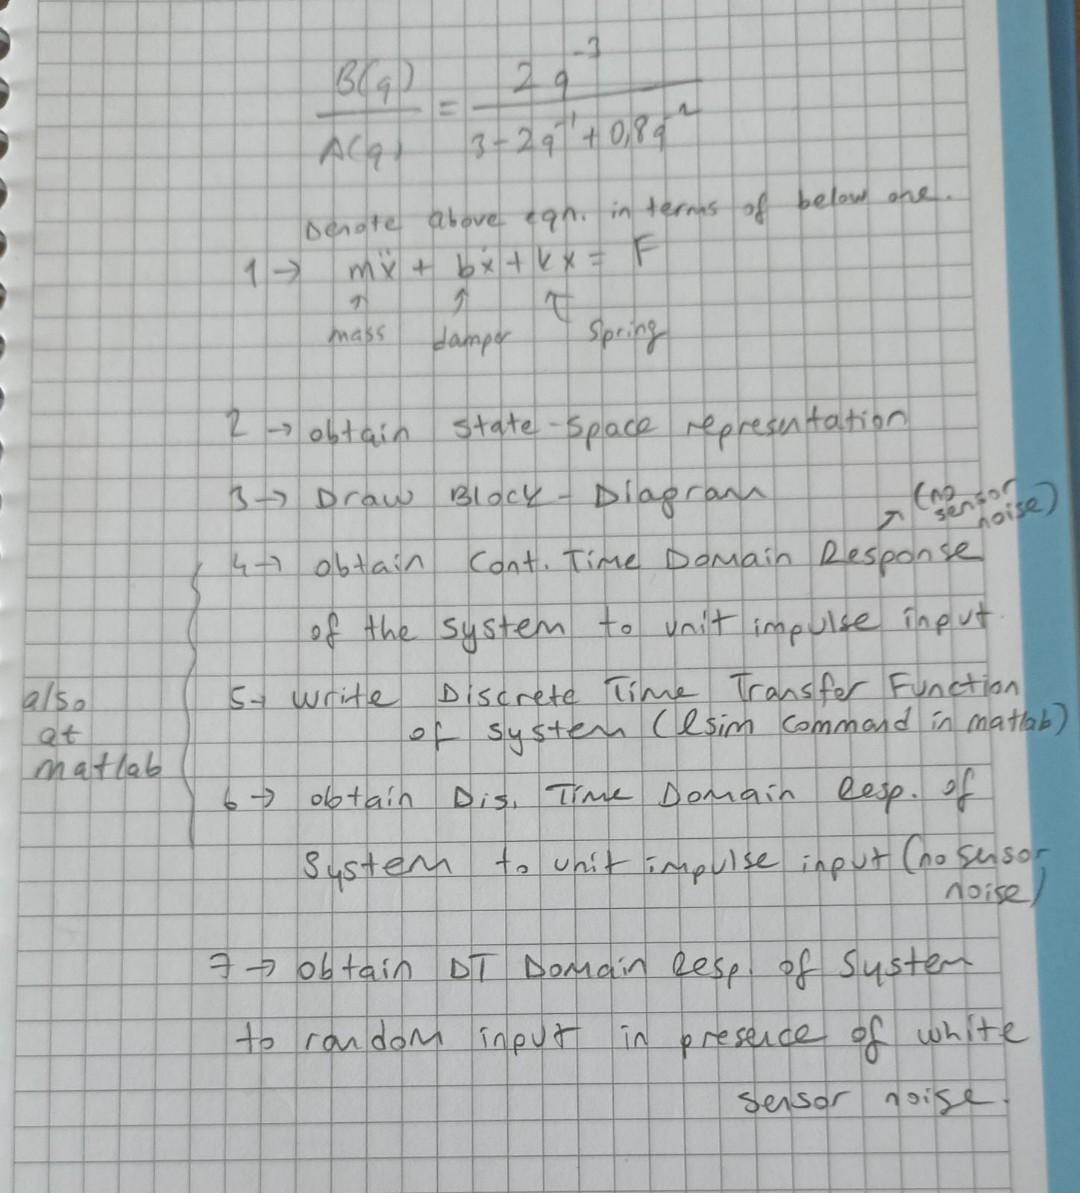 B(q) / A(q) = 2q⁻³ / 3-2q⁻¹+0,8q⁻²
Denote above eqn. in terms of below one.
1→ mẍ + bẋ + kx = F
mass damper spring
2 → obtain state-space representation
3 → Draw Block-Diagram
(no sensor noise)
4→ obtain Cont. Time Domain Response
of the system to unit impulse input.
5→ write Discrete Time Transfer Function
of system (lsim command in matlab)
also
at
matlab
6→ obtain Dis. Time Domain Resp. of
system to unit impulse input (no sensor
noise)
7→ obtain DT Domain Resp. of system
to random input in presence of white
sensor noise.